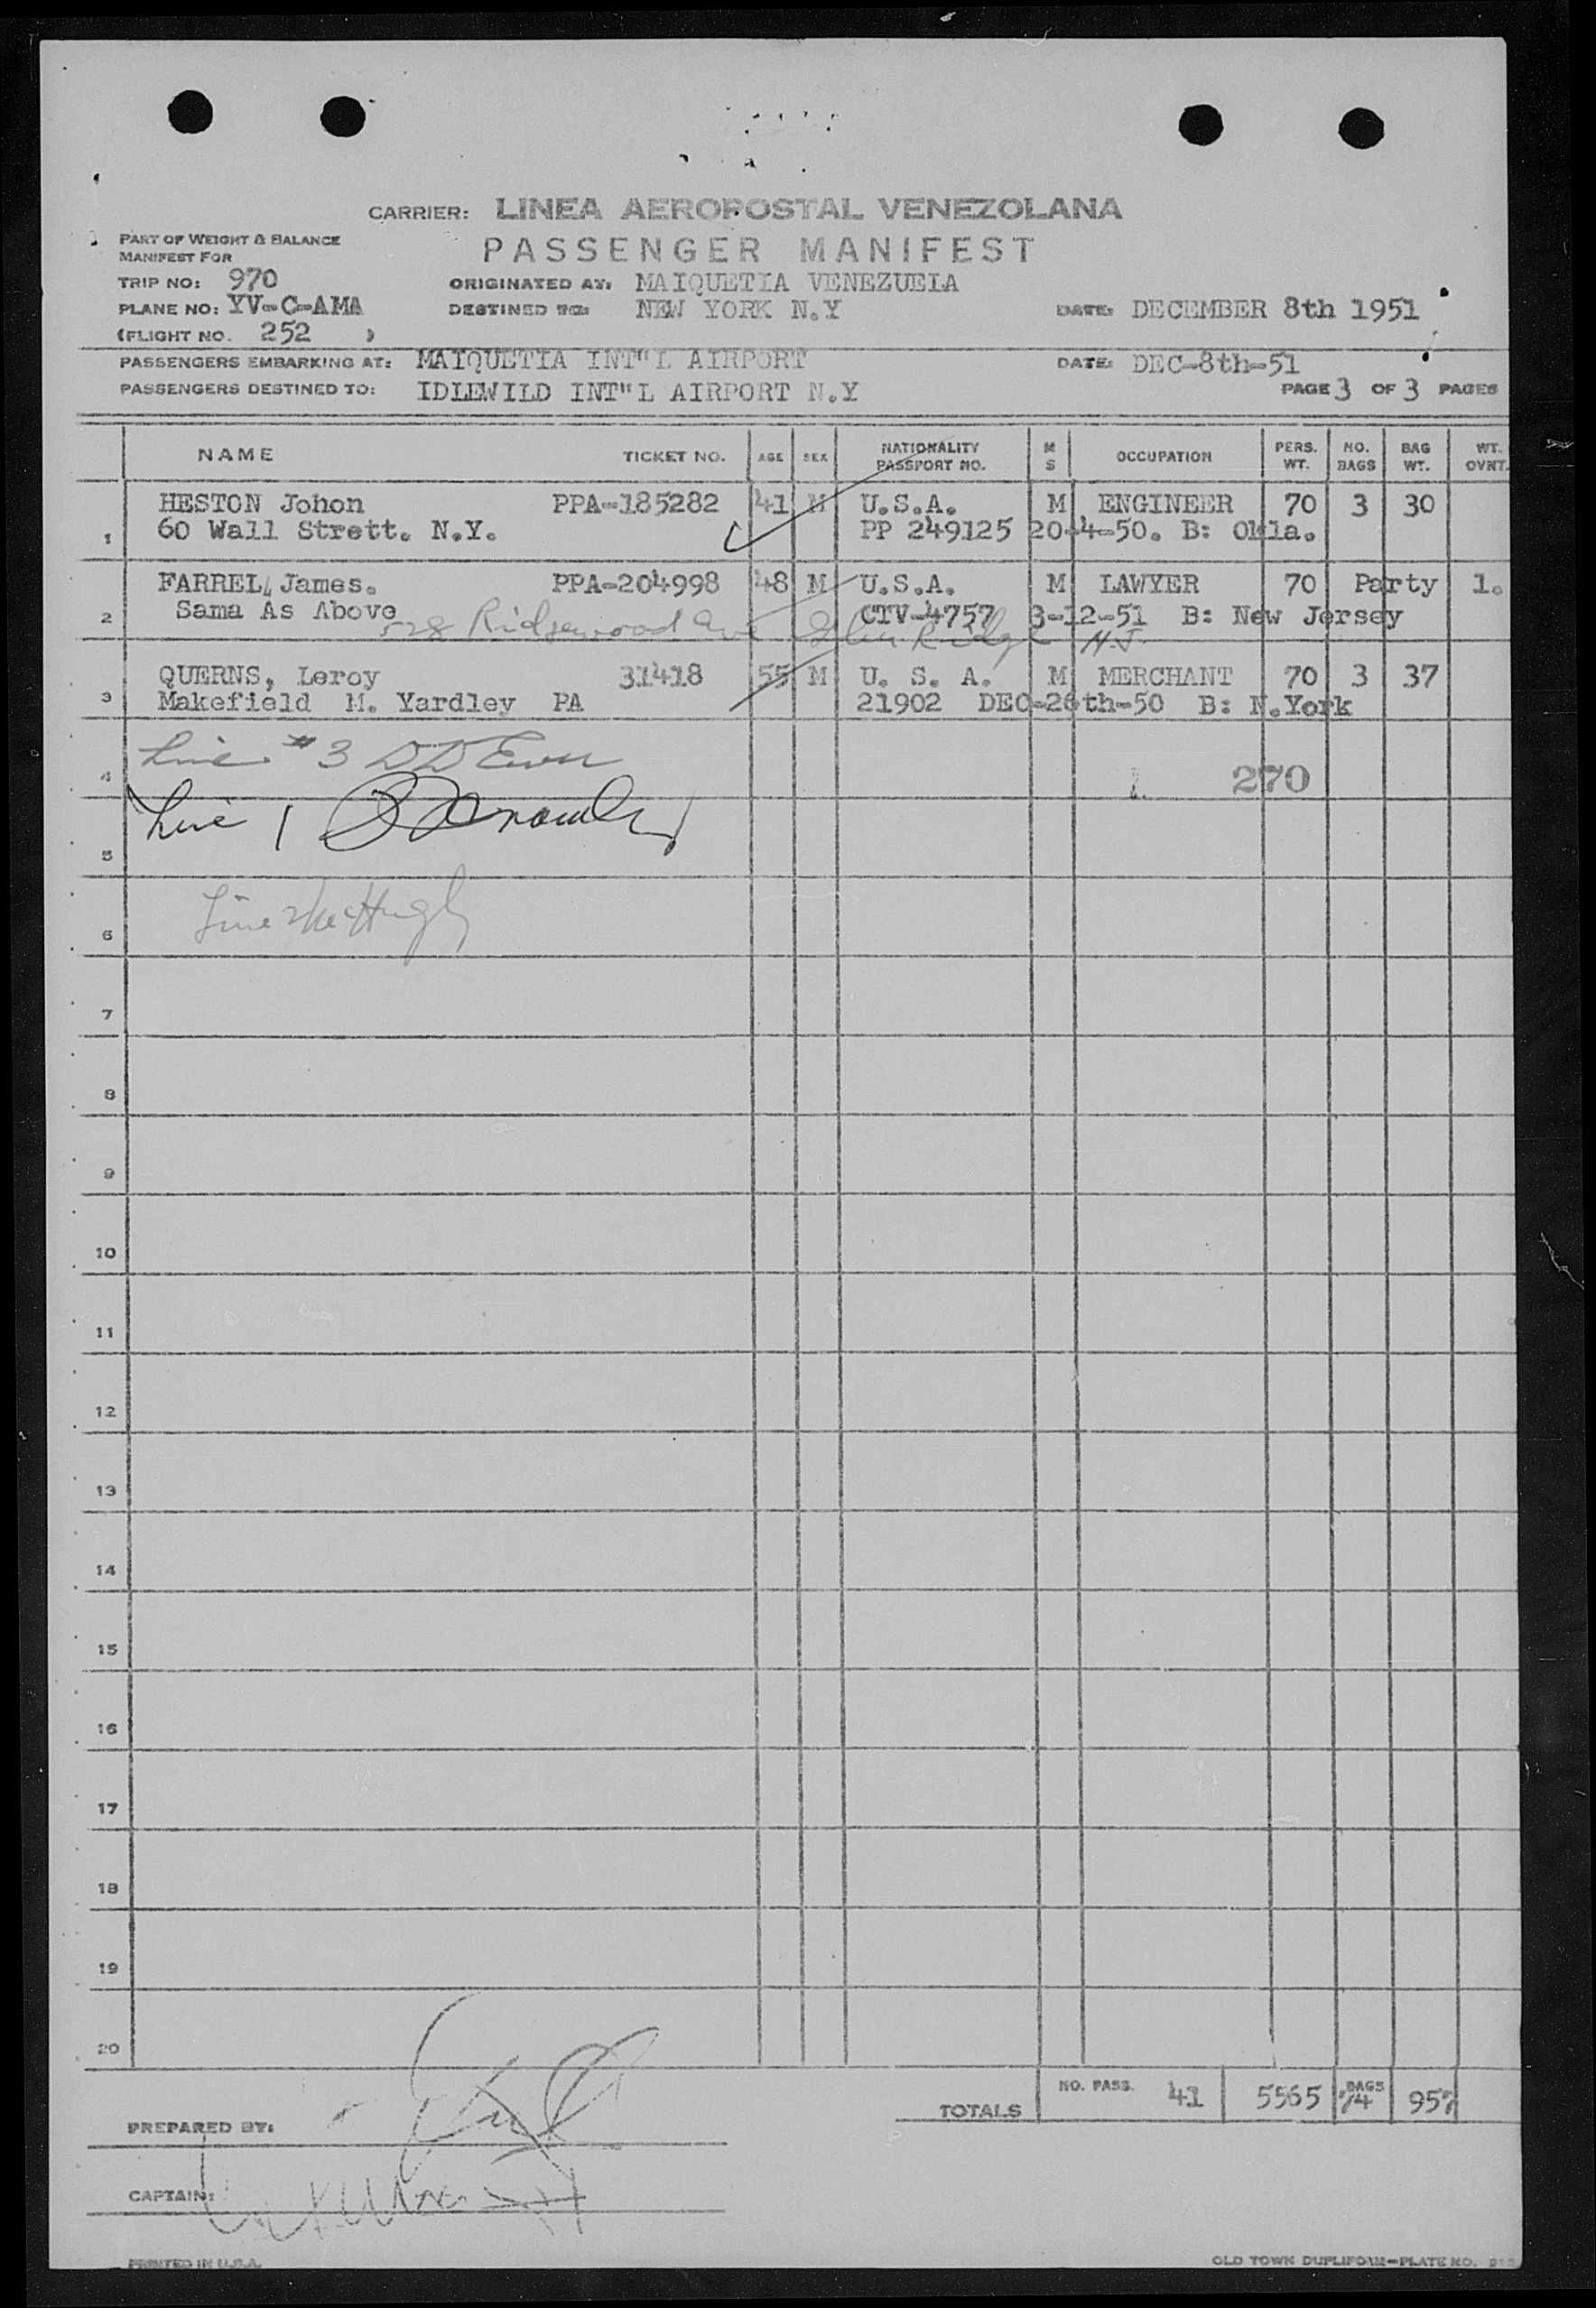 CARRIER: LINEA AEROPOSTAL VENEZOLANA
PART OF WEIGHT & BALANCE
MANIFEST FOR
PASSENGER MANIFEST
TRIP NO: 970 ORIGINATED AT: MAIQUETIA VENEZUELA
PLANE NO: YV-C-AMA DESTINED TO: NEW YORK N.Y DATE: DECEMBER 8th 1951
(FLIGHT NO. 252 )
PASSENGERS EMBARKING AT: MAIQUETIA INT"L AIRPORT DATE: DEC-8th-51
PASSENGERS DESTINED TO: IDLEWILD INT"L AIRPORT N.Y PAGE 3 OF 3 PAGES
NAME TICKET NO. AGE SEX NATIONALITY PASSPORT NO. M S OCCUPATION PERS. WT. NO. BAGS BAG WT. WT. OVHT.
HESTON Johon PPA-185282 41 M U.S.A. M ENGINEER 70 3 30
1 60 Wall Strett. N.Y. PP 249125 20-4-50. B: Okla.
FARREL, James. PPA-204998 48 M U.S.A. M LAWYER 70 Party 1.
2 Sama As Above CTV-4757 3-12-51 B: New Jersey
528 Ridgewood Ave Glen Ridge N.J.
QUERNS, Leroy 31418 55 M U. S. A. M MERCHANT 70 3 37
3 Makefield M. Yardley PA 21902 DEC-26th-50 B: N.York
Line #3 DD
4 270
Line 1
5
Line 2 McHugh
6
7
8
9
10
11
12
13
14
15
16
17
18
19
20
TOTALS NO. PASS. 41 5565 BAGS 74 957
PREPARED BY:
CAPTAIN:
PRINTED IN U.S.A. OLD TOWN DUPLIFORM-PLATE NO.